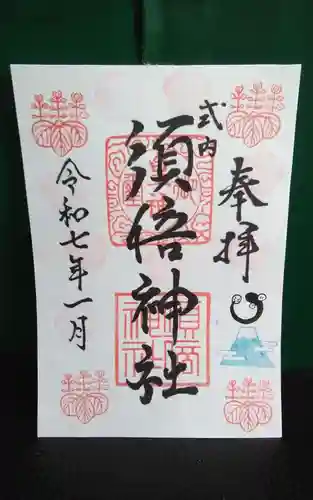 奉拝
式内
須倍神社
令和七年一月